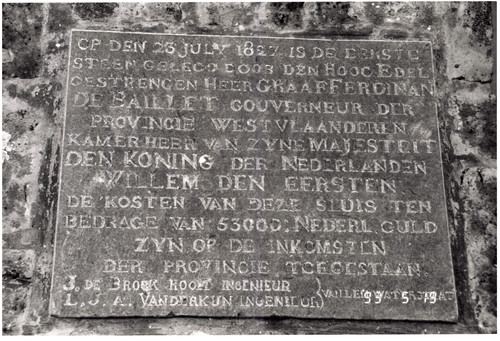 OP DEN 23 JULY 1827 IS DE EERSTE
STEEN GELEGD DOOR DEN HOOG EDEL
GESTRENGEN HEER GRAAF FERDINAN
DE BAILLET GOUVERNEUR DER
PROVINCIE WESTVLAANDEREN
KAMERHEER VAN ZYNE MAJESTEIT
DEN KONING DER NEDERLANDEN
WILLEM DEN EERSTEN
DE KOSTEN VAN DEZE SLUIS TEN
BEDRAGE VAN 53000: NEDERL GULD
ZYN OP DE INKOMSTEN
DER PROVINCIE TOEGESTAAN.
J. DE BROCK HOOFT INGENIEUR
L. J. A. VANDERKUN INGENIEUR
VAN DEN WATERSTAAT
99 5 79